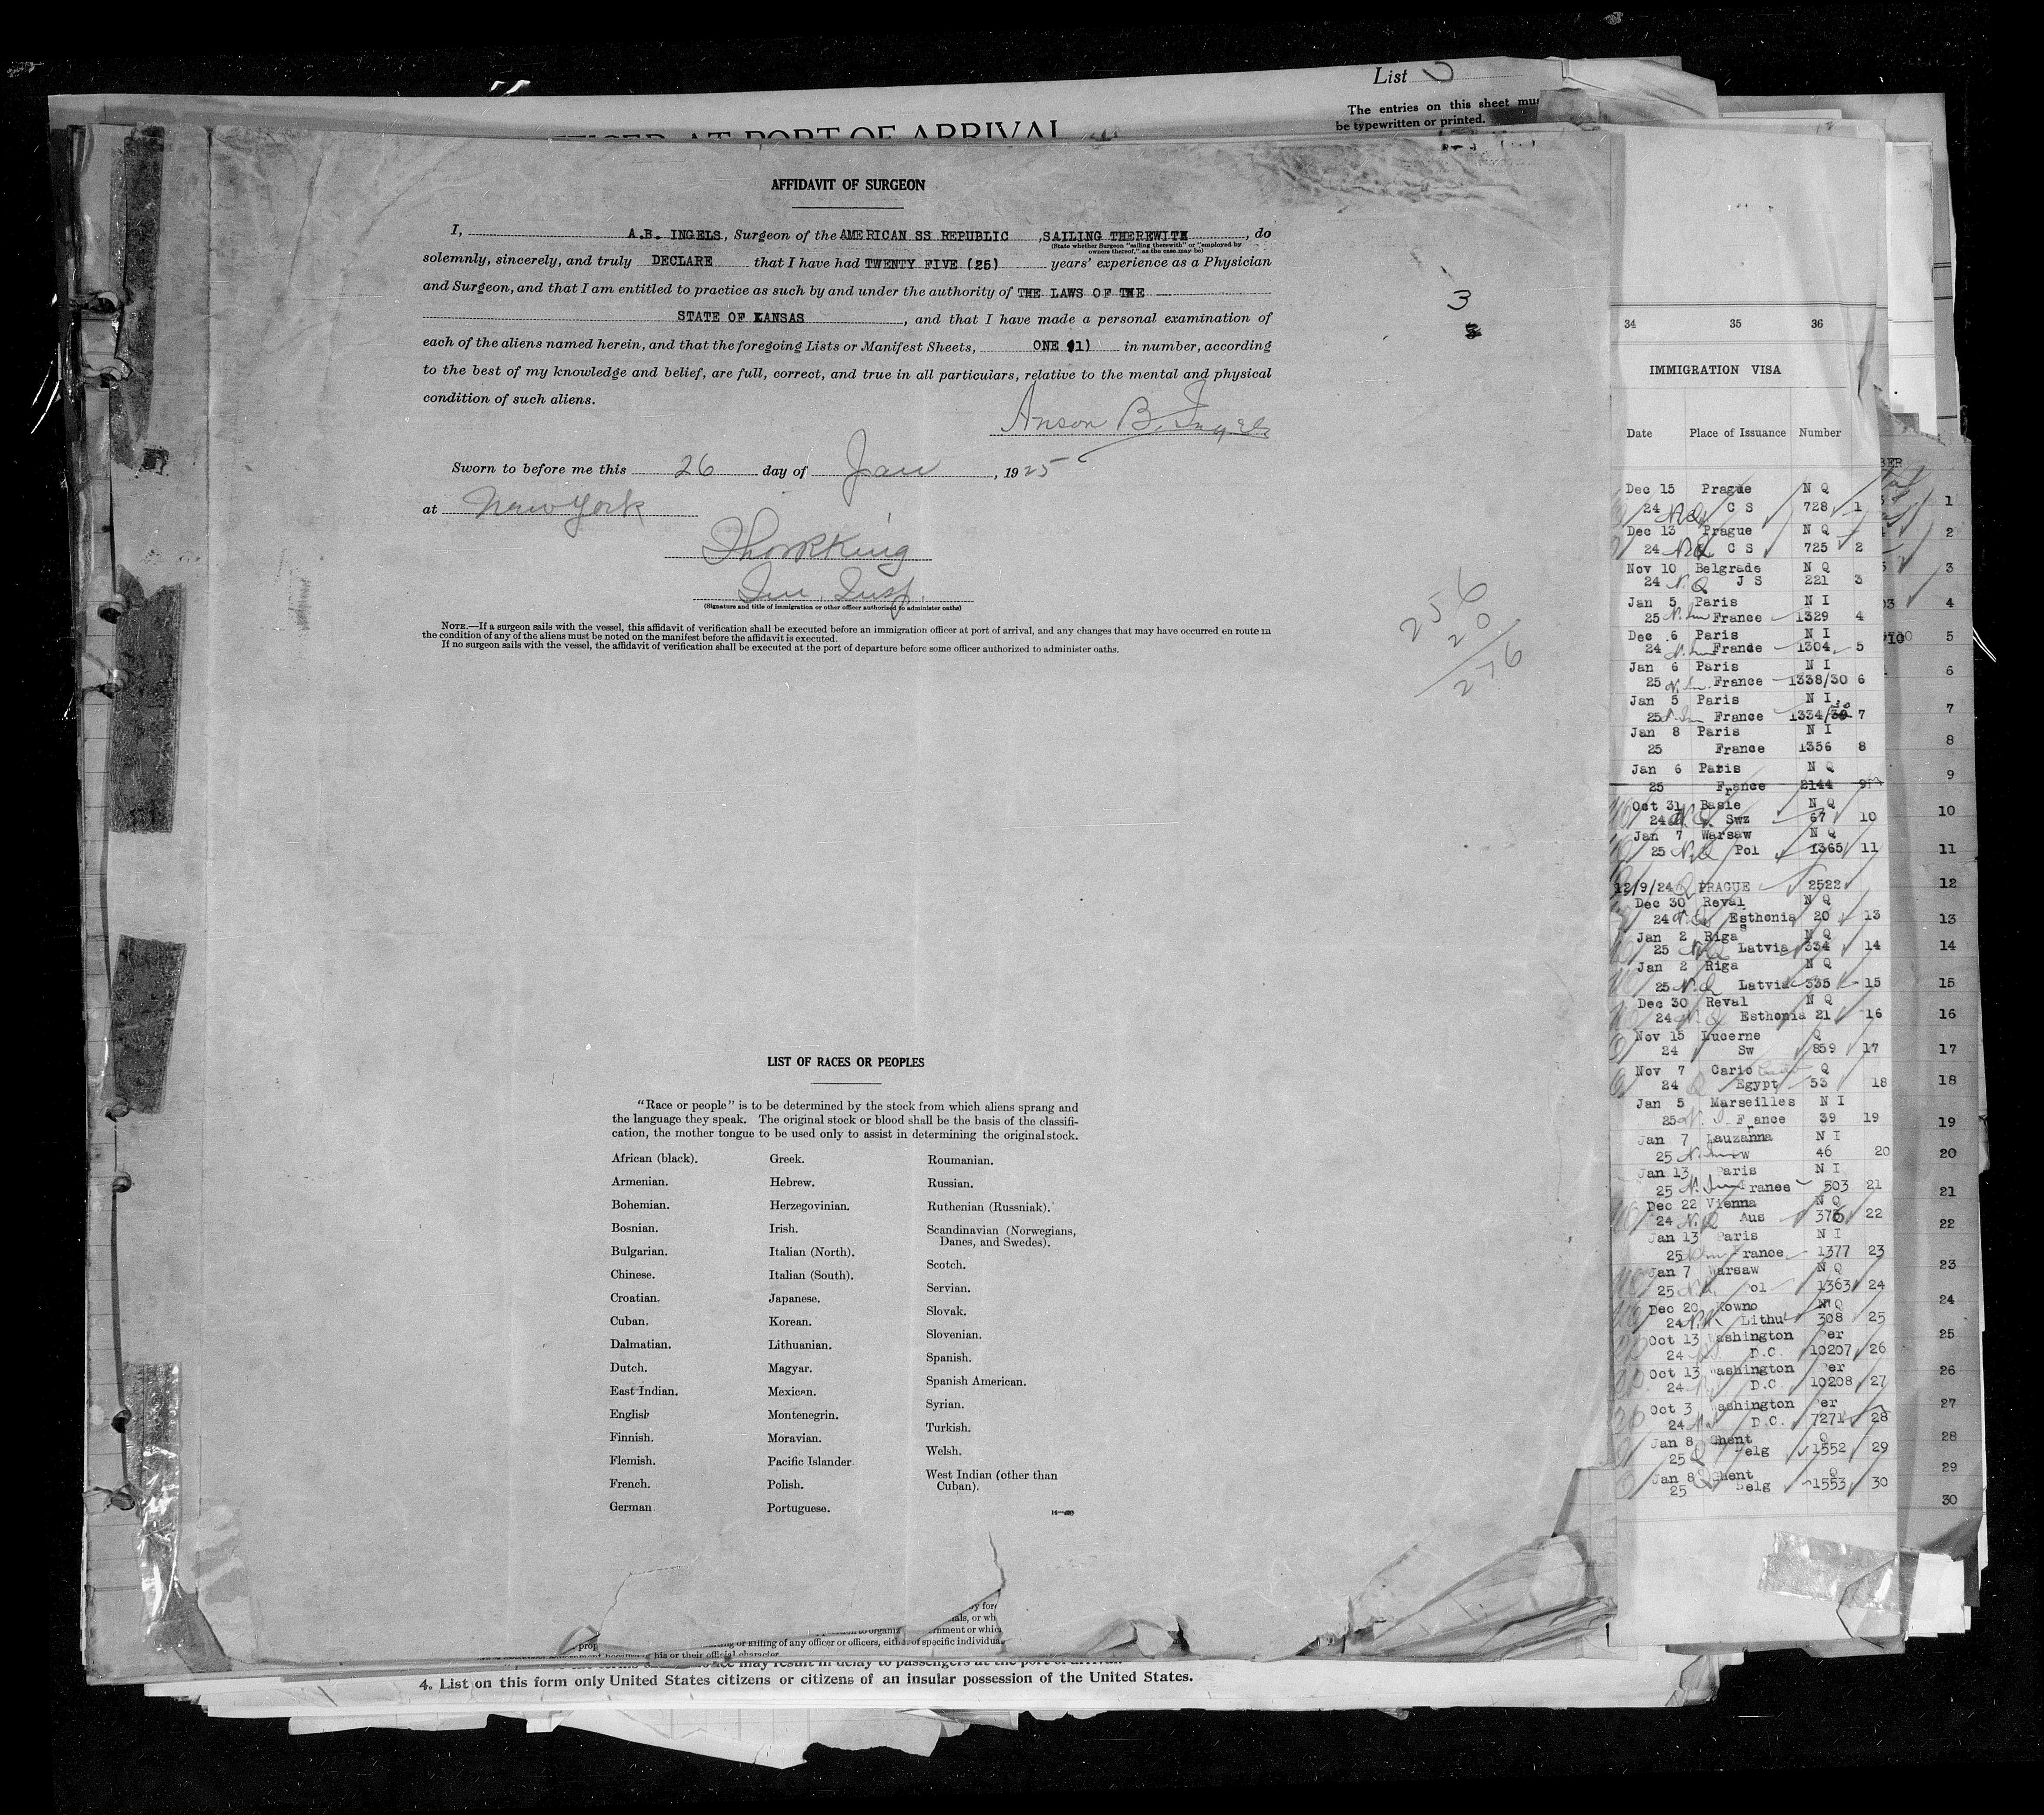 List
The entries on this sheet mu
be typewritten or printed.
AT PORT OF ARRIVAL
AFFIDAVIT OF SURGEON
I, A.B. INGELS, Surgeon of the AMERICAN SS REPUBLIC ,SAILING THEREWITH , do
(State whether Surgeon "sailing therewith" or "employed by
owners thereof," as the case may be)
solemnly, sincerely, and truly DECLARE that I have had TWENTY FIVE (25) years' experience as a Physician
and Surgeon, and that I am entitled to practice as such by and under the authority of THE LAWS OF THE
STATE OF KANSAS , and that I have made a personal examination of
each of the aliens named herein, and that the foregoing Lists or Manifest Sheets, ONE (1) in number, according
to the best of my knowledge and belief, are full, correct, and true in all particulars, relative to the mental and physical
condition of such aliens.
Anson B. Ingels
3
Sworn to before me this 26 day of Jan , 1925
at New York
Imm. Insp.
(Signature and title of immigration or other officer authorized to administer oaths)
NOTE.—If a surgeon sails with the vessel, this affidavit of verification shall be executed before an immigration officer at port of arrival, and any changes that may have occurred en route in
the condition of any of the aliens must be noted on the manifest before the affidavit is executed.
If no surgeon sails with the vessel, the affidavit of verification shall be executed at the port of departure before some officer authorized to administer oaths.
256
20
276
LIST OF RACES OR PEOPLES
"Race or people" is to be determined by the stock from which aliens sprang and
the language they speak. The original stock or blood shall be the basis of the classifi-
cation, the mother tongue to be used only to assist in determining the original stock.
African (black).
Armenian.
Bohemian.
Bosnian.
Bulgarian.
Chinese.
Croatian.
Cuban.
Dalmatian.
Dutch.
East Indian.
English
Finnish.
Flemish.
French.
German
Greek.
Hebrew.
Herzegovinian.
Irish.
Italian (North).
Italian (South).
Japanese.
Korean.
Lithuanian.
Magyar.
Mexican.
Montenegrin.
Moravian.
Pacific Islander
Polish.
Portuguese.
Roumanian.
Russian.
Ruthenian (Russniak).
Scandinavian (Norwegians,
Danes, and Swedes).
Scotch.
Servian.
Slovak.
Slovenian.
Spanish.
Spanish American.
Syrian.
Turkish.
Welsh.
West Indian (other than
Cuban).
or killing of any officer or officers, either of specific individua
his or their official character
may result in delay to passengers at the port of arrival.
4. List on this form only United States citizens or citizens of an insular possession of the United States.
34 35 36
IMMIGRATION VISA
Date Place of Issuance Number
Dec 15 Prague N Q
24 N.Q. C S 728 1
Dec 13 Prague N Q
24 N.Q. C S 725 2
Nov 10 Belgrade N Q
24 N.Q J S 221 3
Jan 5 Paris N I
25 N.Im France 1329 4
Dec 6 Paris N I
24 N.Im France 1304 5
Jan 6 Paris N I
25 N.Im. France 1338/30 6
Jan 5 Paris N I
25 N.Im France 1334/30 7
Jan 8 Paris N I
25 France 1356 8
Jan 6 Paris N Q
25 France 2144 9
Oct 31 Basle N Q
24 N.Q. Swz 67 10
Jan 7 Warsaw N Q
25 N.Q Pol 1365 11
12/9/24 Q PRAGUE 2522
Dec 30 Reval N Q
24 N.Q Esthonia 20 13
Jan 2 Riga N Q
25 N.Q Latvia 334 14
Jan 2 Riga N Q
25 N.Q Latvia 335 15
Dec 30 Reval N Q
24 N.Q Esthonia 21 16
Nov 15 Lucerne Q
24 Sw 859 17
Nov 7 Cario Cairo Q
24 Q Egypt 53 18
Jan 5 Marseilles N I
25 N.I. France 39 19
Jan 7 Lauzanna N I
25 N.Im w 46 20
Jan 13 Paris N I
25 N.Im France 503 21
Dec 22 Vienna N Q
24 N.Q Aus 376 22
Jan 13 Paris N I
25 France 1377 23
Jan 7 Warsaw N Q
25 N.Q ol 1363 24
Dec 20 Kowno N Q
24 N.Q Lithu 308 25
Oct 13 Washington Per
24 D.C. 10207 26
Oct 13 Washington Per
24 D.C. 10208 27
Oct 3 Washington Per
24 D.C. 7271 28
Jan 8 Ghent Q
25 Q Belg 1552 29
Jan 8 Q Ghent Q
25 Belg 1553 30
BER
1
2
3
4
5
6
7
8
9
10
11
12
13
14
15
16
17
18
19
20
21
22
23
24
25
26
27
28
29
30